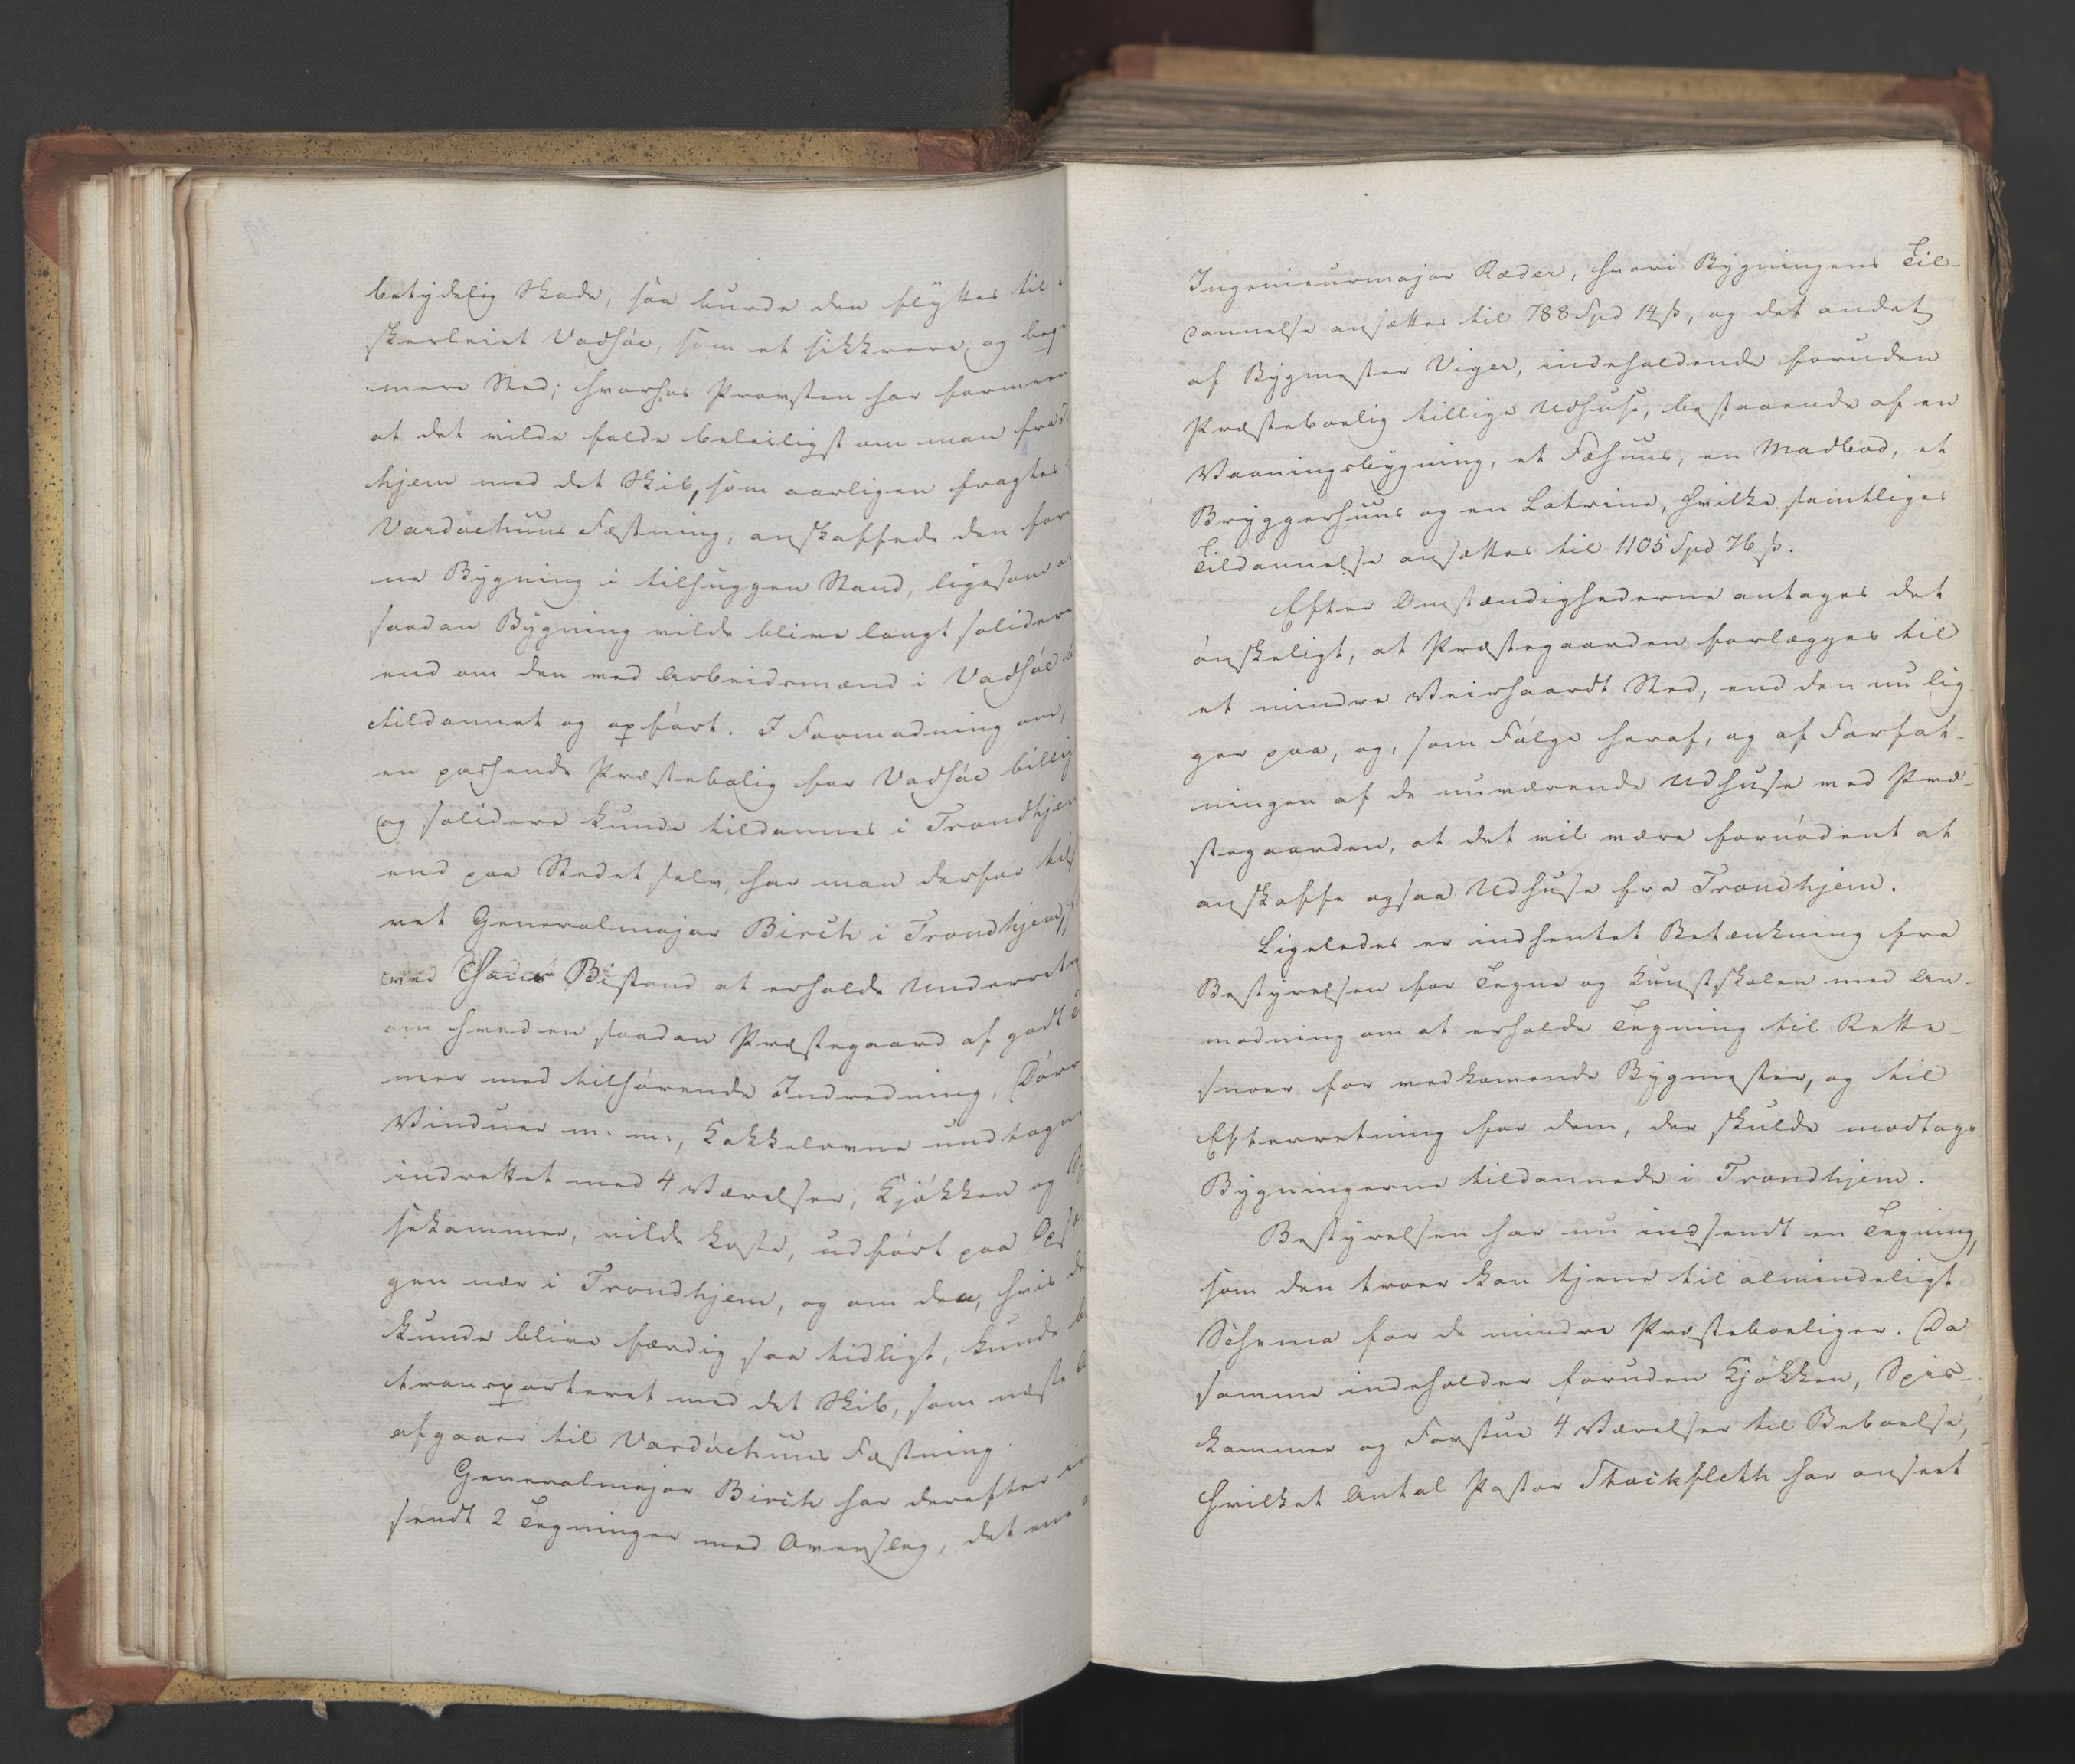 betydelig Skade, saa burde den flyttes til
skerleiet Vadsøe, som et sikkrere og beq
mere Sted; hvorhos Provsten har formeen
at det vilde falde beleiligst om man fra
hjem med det Skib, som aarligen fragtes
Vardøehuus Fæstning, anskaffede den for
ne Bygning i tilhuggen Stand, ligesom
saadan Bygning vilde blive langt solidere
end om den ved Arbeidsmænd i Vadsøe
tildannet og opført. I Formodning om,
en passende Præstebolig for Vadsøe billig
og solidere kunde tildannes i Trondhjem
end paa Stedet selv, har man derfor til
ret Generalmajor Birch i Trondhjem,
ved Hans Bistand at erholde Underretn
om hvad en saadan Præstegaard af godt
mer med tilhørende Indredning, Dørr
Vinduer m: m:, Kakkelovne undtagne
indrettet med 4 Værelser, Kjøkken og
sekammer, vilde koste, udført paa Opsæ
gen nær i Trondhjem, og om den, hvis
kunde blive færdig saa tidligt, kunde
transporteret med det Skib, som næste
afgaaer til Vardøehuus Fæstning.
Generalmajor Birch har derefter
sendt 2 Tegninger med Overslag, det ene
Ingenieurmajor Ræder, hvori Bygningens Til-
dannelse ansættes til 788 Spd 14 ß, og det andet
af Bygmester Viger, indeholdende foruden
Præsteboelig tillige Udhuse, bestaaende af en
Vaaningsbygning, et Fæhuus, en Madbod, et
Bryggerhuus og en Latrine, hvilke samtliges
Tildannelse ansættes til 1105 Spd 76 ß.
Efter Omstændighederne antages det
ønskeligt, at Præstegaarden forlægges til
et mindre Veirhaardt Sted, end den nu lig
ger paa, og, som Følge heraf, og af Forfat-
ningen af de nuværende Udhuse ved Præ-
stegaarden, at det vil være fornødent at
anskaffe ogsaa Udhuse fra Trondhjem.
Ligeledes er indhentet Betænkning fra
Bestyrelsen for Tegne og Kunstskolen med An-
modning om at erholde Tegning til Rette-
snoer for vedkomende Bygmester, og til
Efterretning for dem, der skulde modtage
Bygningerne tildannede i Trondhjem.
Bestyrelsen har nu indsendt en Tegning,
som den troer kan tjene til almindeligt
Schema for de mindre Præsteboeliger. Da
samme indeholder foruden Kjøkken, Spis-
kammer og Forstue 4 Værelser til Beboelse,
hvilket Antal Pastor Stockfleth har anseet